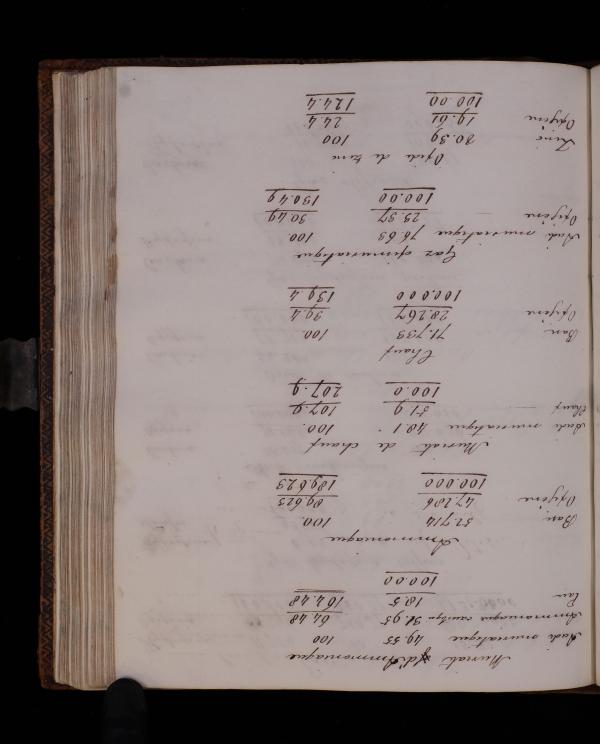 Muriate d'Ammoniaque
Acide muriatique 49.55 100
Ammoniaque 31.95 64.48
Eau 18.5 164.48
100.00
Ammoniaque
Base 52.714 100.
Oxigène 47.286 89.623
100.000 189.623
Muriate de chaux
Acide muriatique 48.1 100.
Chaux 51.9 107.9
100.0 207.9
Chaux
Base 71.733 100.
Oxigène 28.267 39.4
100.000 139.4
Gaz oximuriatique
Acide muriatique 76.63 100.
Oxigène 23.37 30.49
100.00 130.49
Oxide de zinc
Zinc 80.39 100
Oxigène 19.61 24.4
100.00 124.4